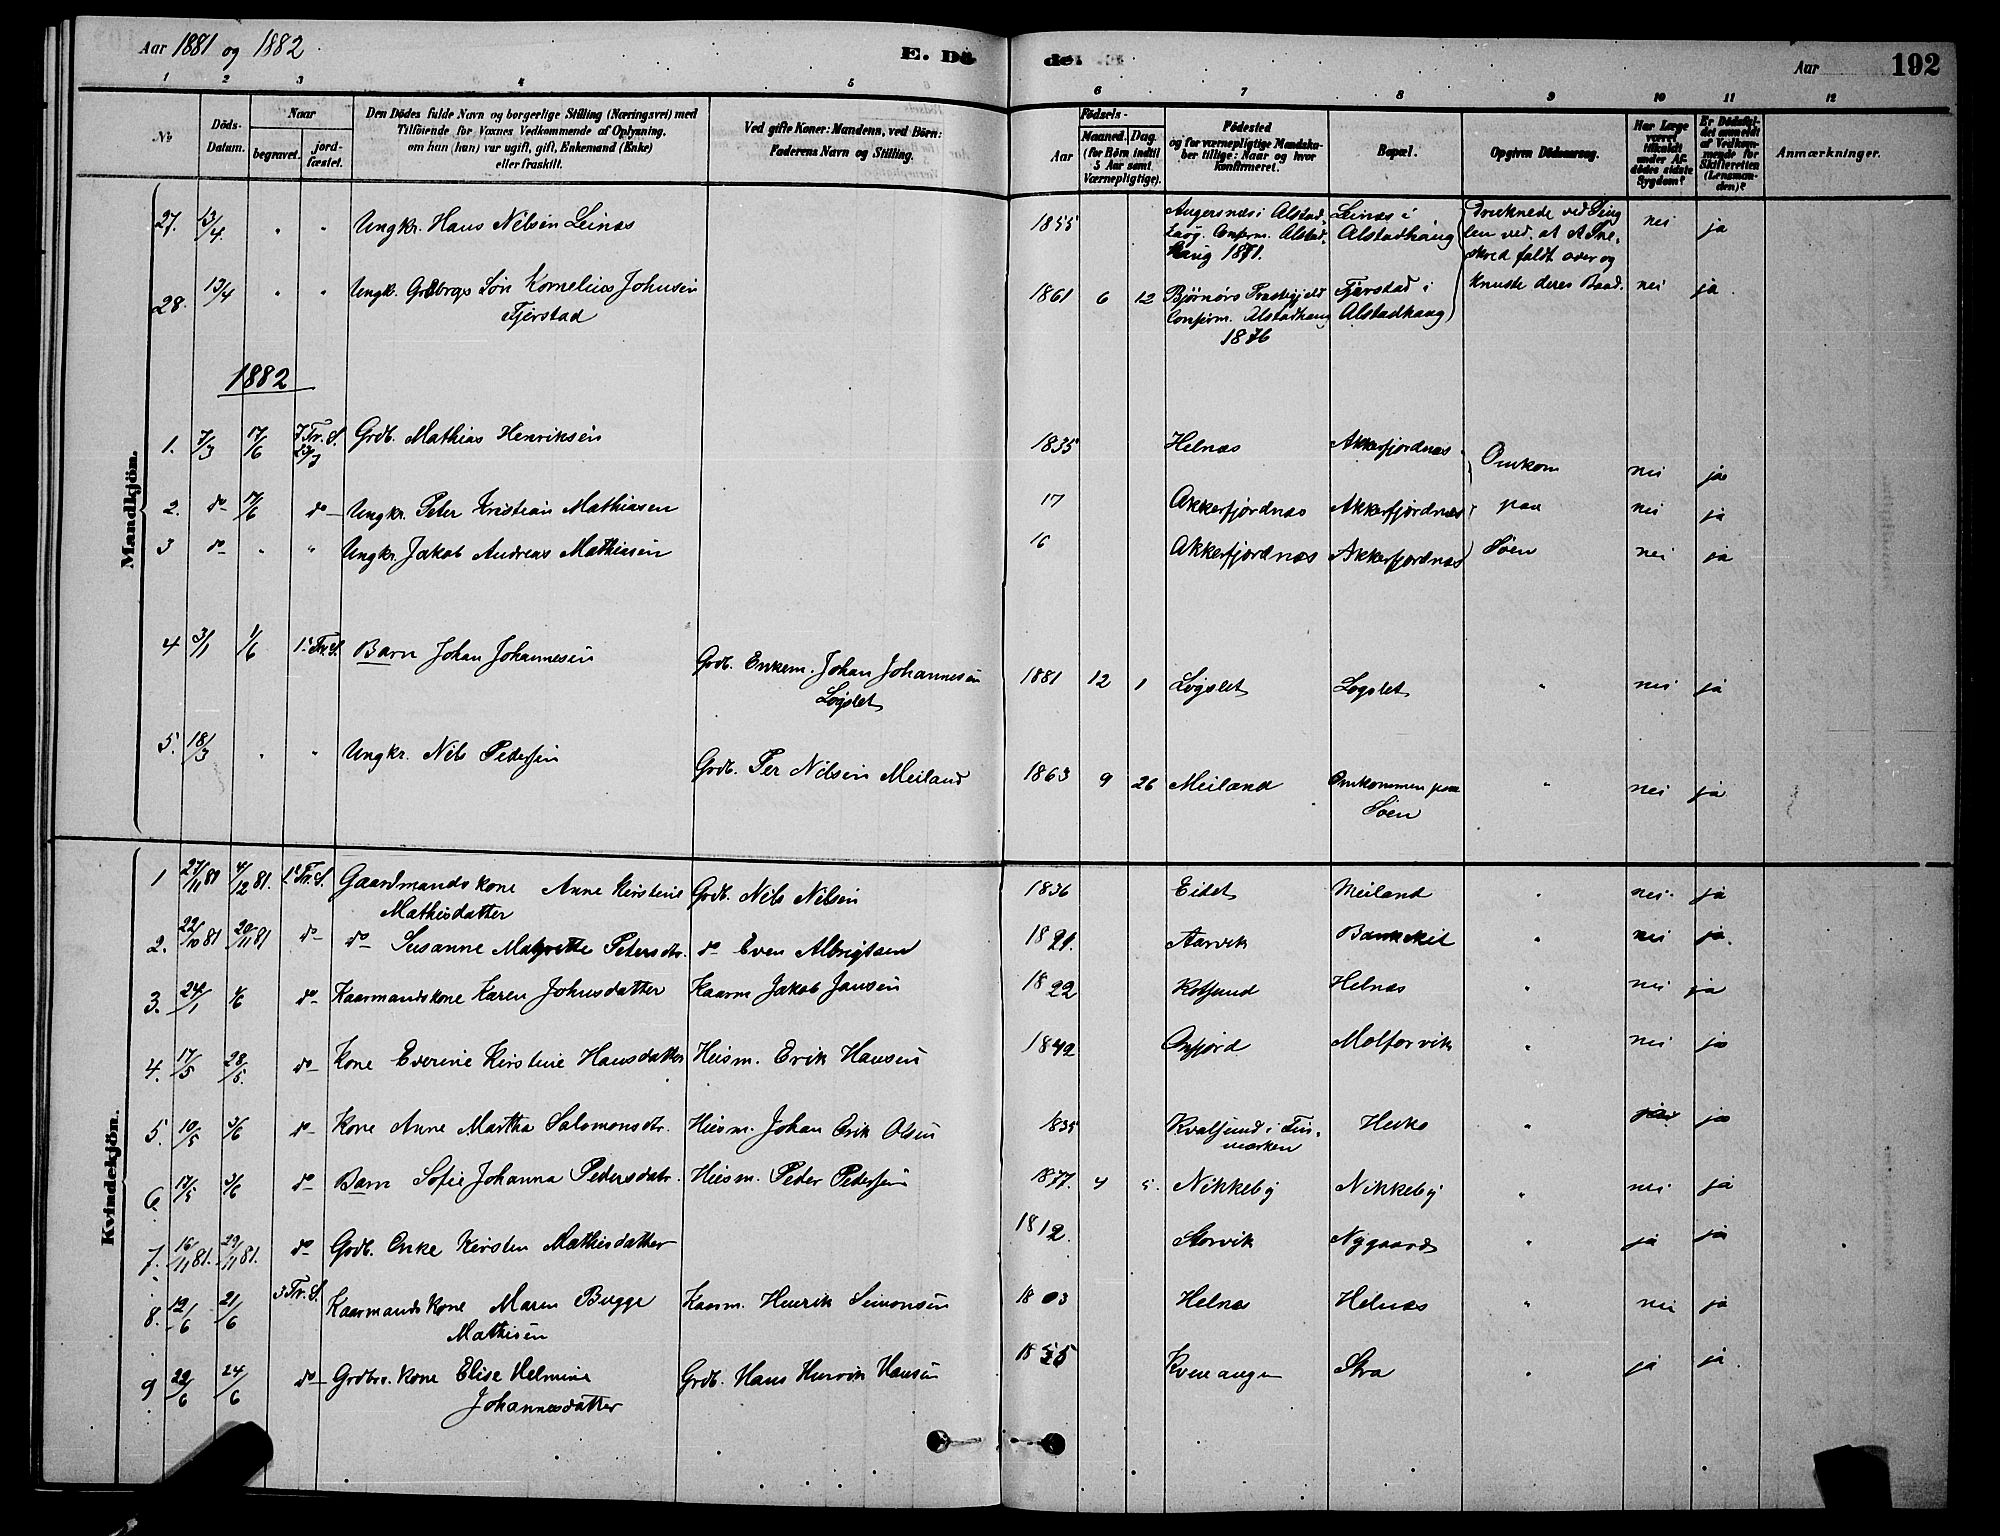 Aar 1881 og 1882
E. Dö
de.
Aar
192
1 2 3 4 5 6 7 8 9 10 11 12
No
Döds-Datum.
Naar
begravet.
jord-fæstet.
Den Dödes fulde Navn og borgerlige Stilling (Næringsvei) med
Tilföiende for Voxnes Vedkommende af Oplysning,
om han (hun) var ugift, gift, Enkemand (Enke)
eller fraskilt.
Ved gifte Koner: Mandens, ved Börn:
Faderens Navn og Stilling.
Födsels-
Aar
Maaned. Dag.
(for Börn indtil
5 Aar samt
Værnepligtige).
Födested
og for værnepligtige Mandska-
ber tillige: Naar og hvor
konfirmeret.
Bopæl.
Opgiven Dödsaarsag.
Har Læge
været
tilkaldt
under Af-
dödes sidste
Sygdom?
Er Dödsfal-
det anmeldt
af Vedkom-
mende for
Skifteretten
(Lensman-
den)?
Anmærkninger.
Mandkjön.
27. 13/4 " " Ungkr. Hans Nilsen Leinæs 1855 Augersnæs i Alstad. Leinæs i Druknede ved nei ja
Confirm. Alstad. Alstadhaug len ved, at et Sne-
haug 1871. skred faldt over og
28. 13/4 " " Ungk. Grdbrgs Søn Kornelius Johnsen 1861 6 12 Bjørnørs Prestegjeld Tjerstad i knuste deres Baad. nei ja.
Tjerstad Confirm. Alstadhaug Alstadhaug
1876
1882
1. 7/3 17/6 Tr. S. Grdb. Mathias Henriksen 1835 Helnæs Akkerfjordnæs Omkom nei ja
2. do 17/6 do Ungkr. Peter Kristian Mathiasen 17 Akkerfjordnæs Akkerfjordnæs paa nei ja
3 do " " Ungkr. Jakob Andreas Mathiasen 16 Akkerfjordnæs Akkerfjordnæs Søen nei ja
4 3/1 1/6 1. Tr. S. Barn Johan Johannesen Grdb. Enkem. Johan Johannesen 1881 12 1 Løgslet Løgslet " nei ja
Løgslet
5. 18/3 " " Ungkr. Nils Pedersen Grdb. Per Nilsen Meiland 1863 9 26 Meiland Omkommen paa " nei ja
Søen
Kvindekjön.
1 27/11 81 4/12 81. 1. Tr. S. Gaardmandskone Anne Kirstine Grdb. Nils Nilsen 1836 Eidet Meiland " nei ja
Mathisdatter
2. 22/10 81 20/11 81 do do Susanne Magrette Petersdtr. do Even Albrigtsen 1821. Aarvik " nei ja.
3. 24/1 1/6 do Kaarmandskone Karen Johnsdatter Kaarm Jakob Jansen 1822 Helnæs " nei ja
4. 17/5 28/5. do Kone Everine Kirstine Hansdatter Heism. Erik Hansen 1842 Oxfjord Molforvik " nei ja
5. 10/5 3/6 do Kone Anne Martha Salomonsdtr. Hiesm. Johan Erik Olsen 1835 Kvalsund i Fin- " ja
marken
6. 17/5 3/6 do Barn Sofie Johanna Pedersdatr. Hiesm. Peder Pedersen 1877. 4 5. Nikkeby Nikkeby " nei ja
7. 16/11 81. 29/11 81. do Grdb. Enke Kirsten Mathisdatter 1812. Storvik Nygaard " ja ja
8. 12/6 21/6 3 Tr. S. Kaarmandskone Maren Bugge Kaarm. Henrik Simonsen 1803 Helnæs Helnæs " nei ja
Mathisen
9 22/6 24/6 do Grdbr. kone Elise Helmine Grdb. Hans Henrik Hansen Kvenangen " ja ja.
Johannesdatter